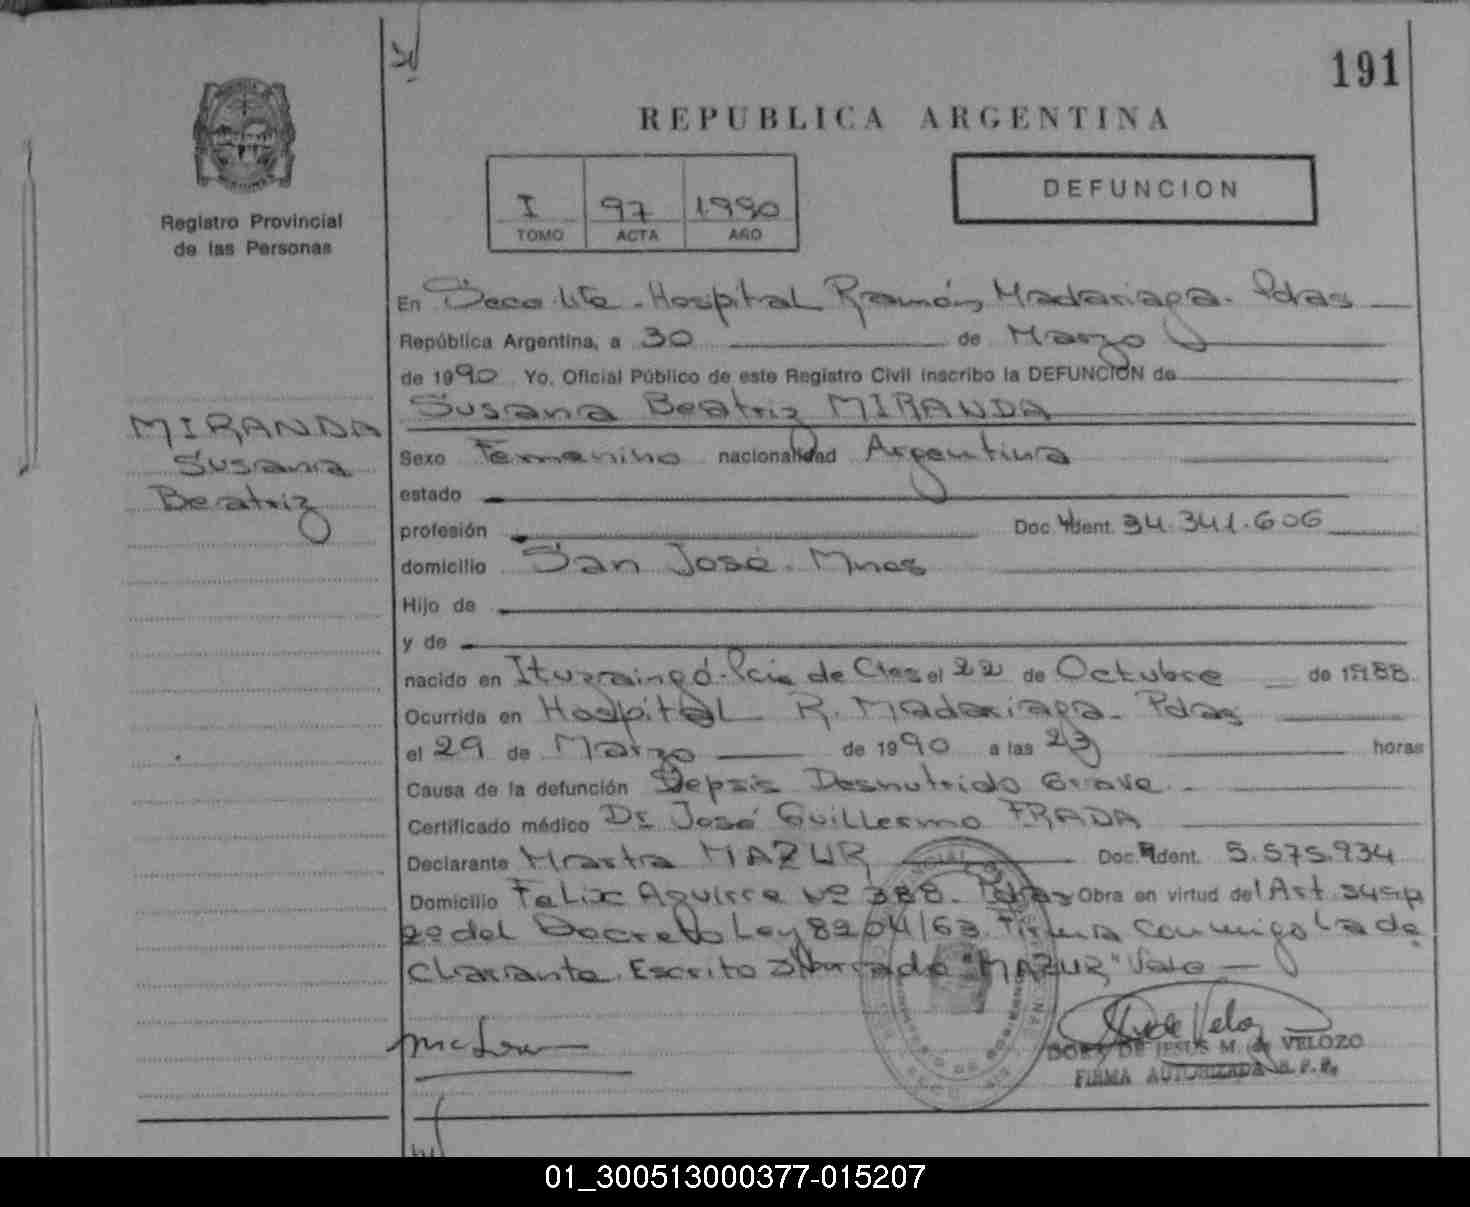 191
REPUBLICA ARGENTINA
DEFUNCION
Registro Provincial
de las Personas
I 97 1990
TOMO ACTA AÑO
En Secc. Hospital Ramón Madariaga. Pdas
República Argentina, a 30 de Marzo
de 1990 Yo, Oficial Público de este Registro Civil inscribo la DEFUNCION de
Susana Beatriz MIRANDA
MIRANDA
Susana
Beatriz
Sexo Femenino nacionalidad Argentina
estado
profesión Doc. Ident. 34.341.606
domicilio San José. Mnes
Hijo de
y de
nacido en Ituzaingó. Pcia de Ctes el 22 de Octubre de 1988
Ocurrida en Hospital R. Madariaga. Pdas
el 29 de Marzo de 1990 a las 23 horas
Causa de la defunción Sepsis Desnutrido Grave
Certificado médico Dr José Guillermo PRADA
Declarante MAZUR Doc. Ident. 5.575.934
Domicilio Felix Aguirre Nº 388. Pdas Obra en virtud del Art.
2º del Decreto Ley 8204/63. Firma conmigo la de
clarante. Escrito "MAZUR" Vale
DORA DE JESUS M. de VELOZO
FIRMA AUTORIZADA R. P. P.
01_300513000377-015207